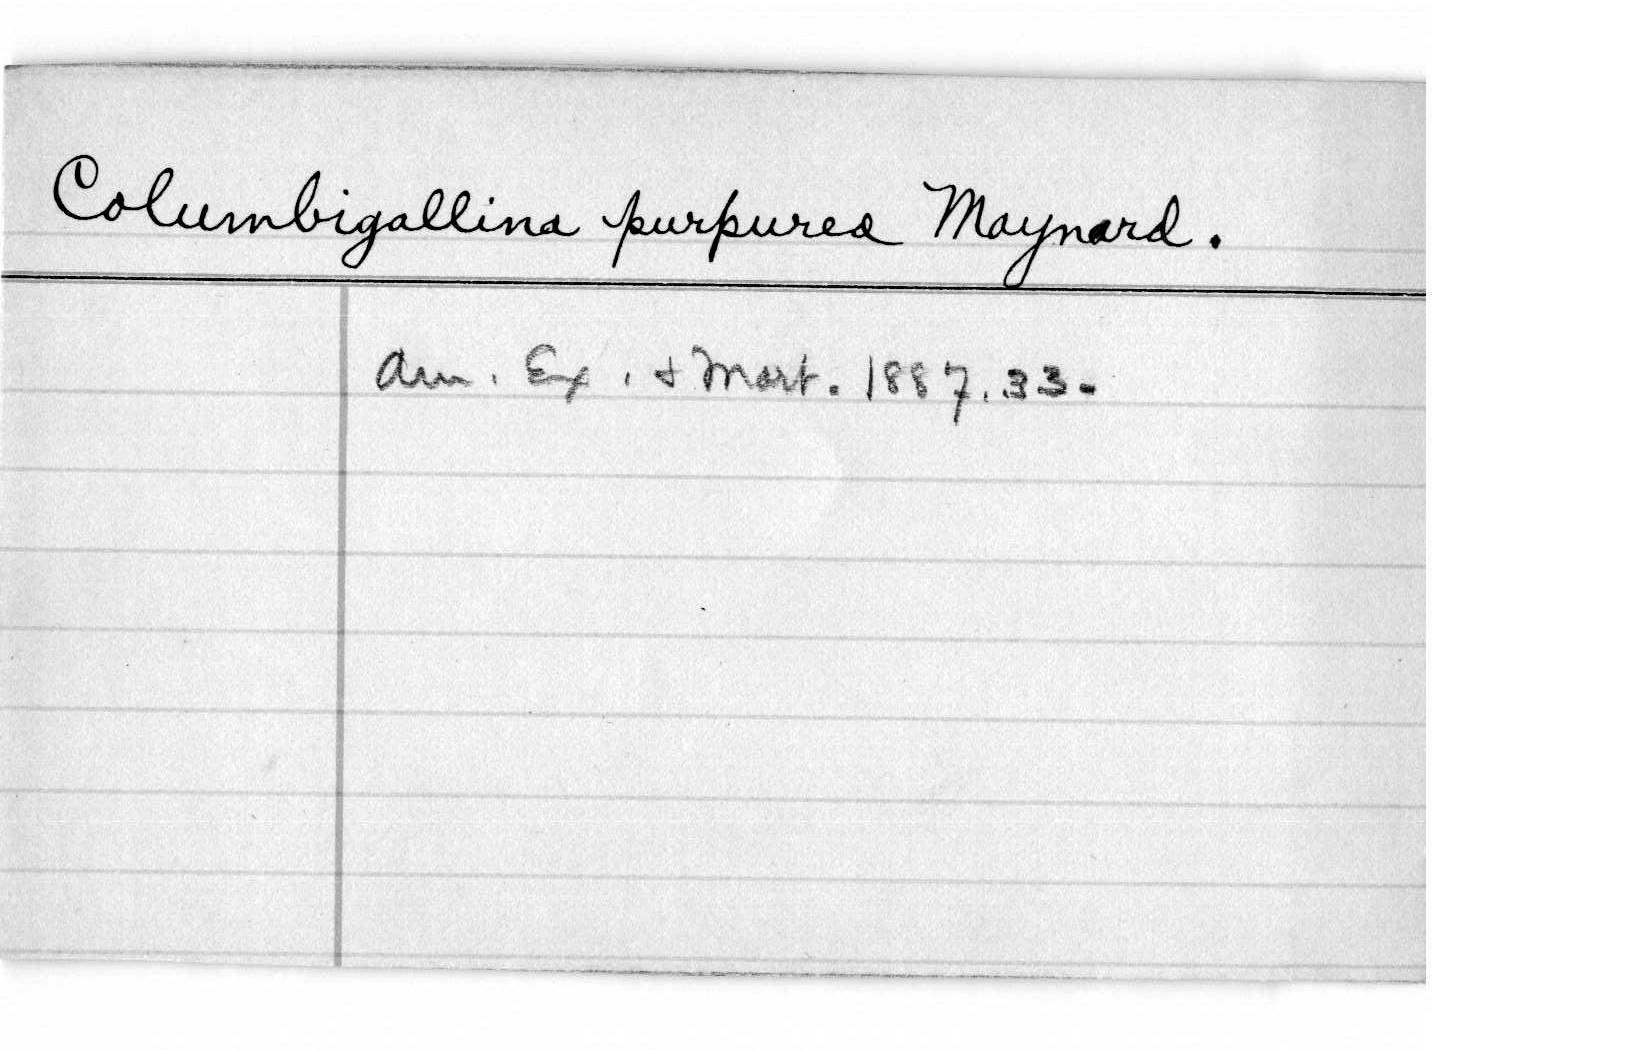 Columbigallina purpurea Maynard.
Am. Ex. & Mart. 1887.33.